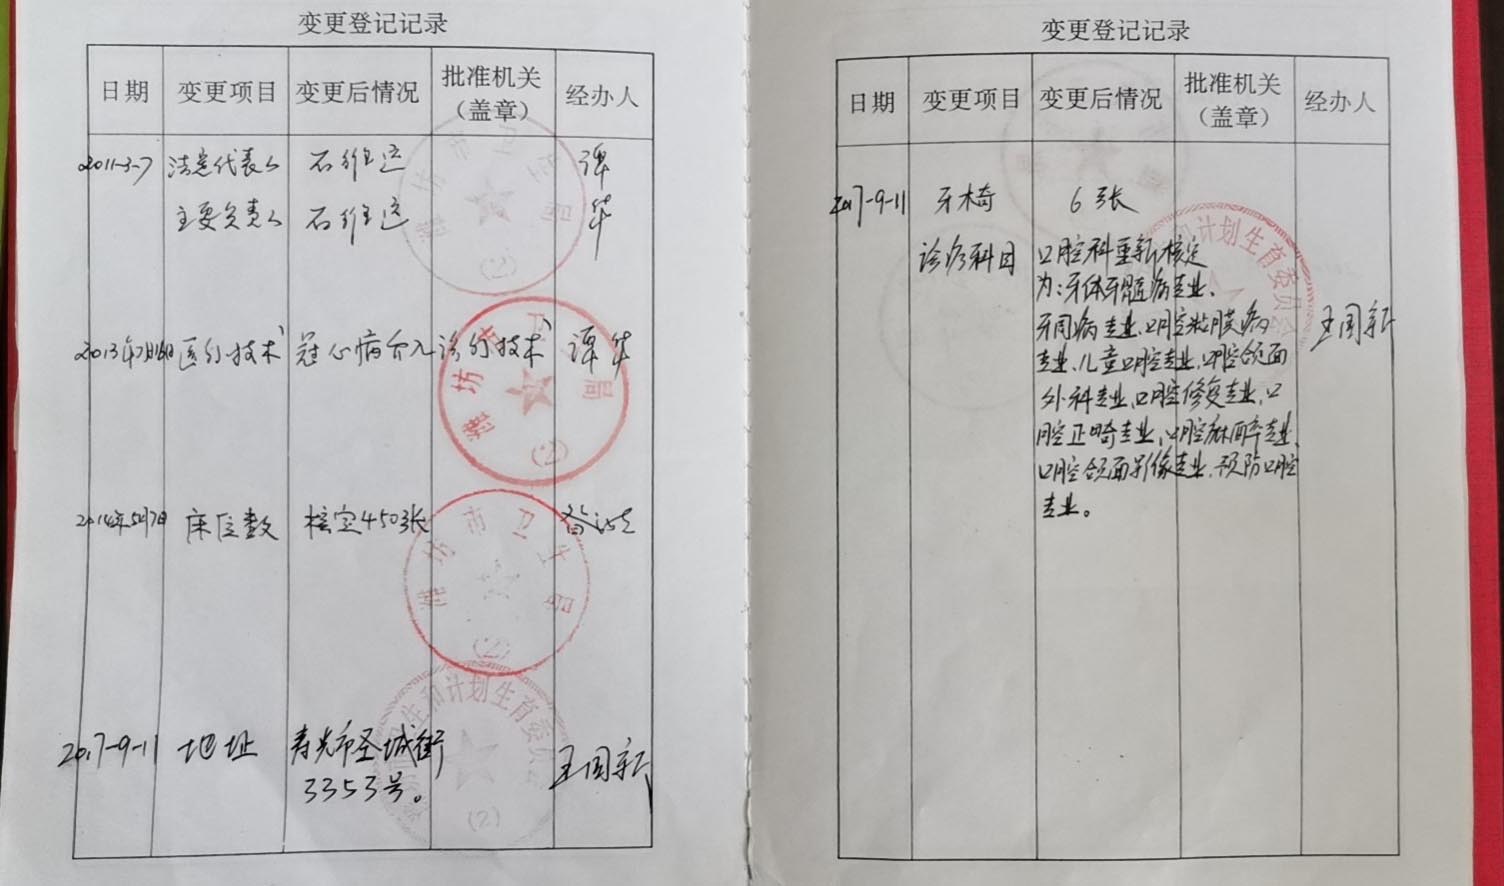 变更登记记录
日期 变更项目 变更后情况 批准机关（盖章） 经办人
2011-3-7 法定代表人 石维运 谭
主要负责人 石维运 华
潍坊市卫生局
(2)
医疗技术 冠心病介入诊疗技术 谭华
潍坊市卫生局
(2)
2014年5月7日 床位数 核定450张
潍坊市卫生局
(2)
2017-9-11 地址 寿光市圣城街 王国新
3353号。
生和计划生育委员会
(2)
变更登记记录
日期 变更项目 变更后情况 批准机关（盖章） 经办人
2017-9-11 牙椅 6张
诊疗科目 口腔科重新核定
为：牙体牙髓病专业、
牙周病专业、口腔粘膜病 王国新
专业、儿童口腔专业、口腔颌面
外科专业、口腔修复专业、口
腔正畸专业、口腔麻醉专业、
口腔颌面影像专业、预防口腔
专业。
和计划生育委员会